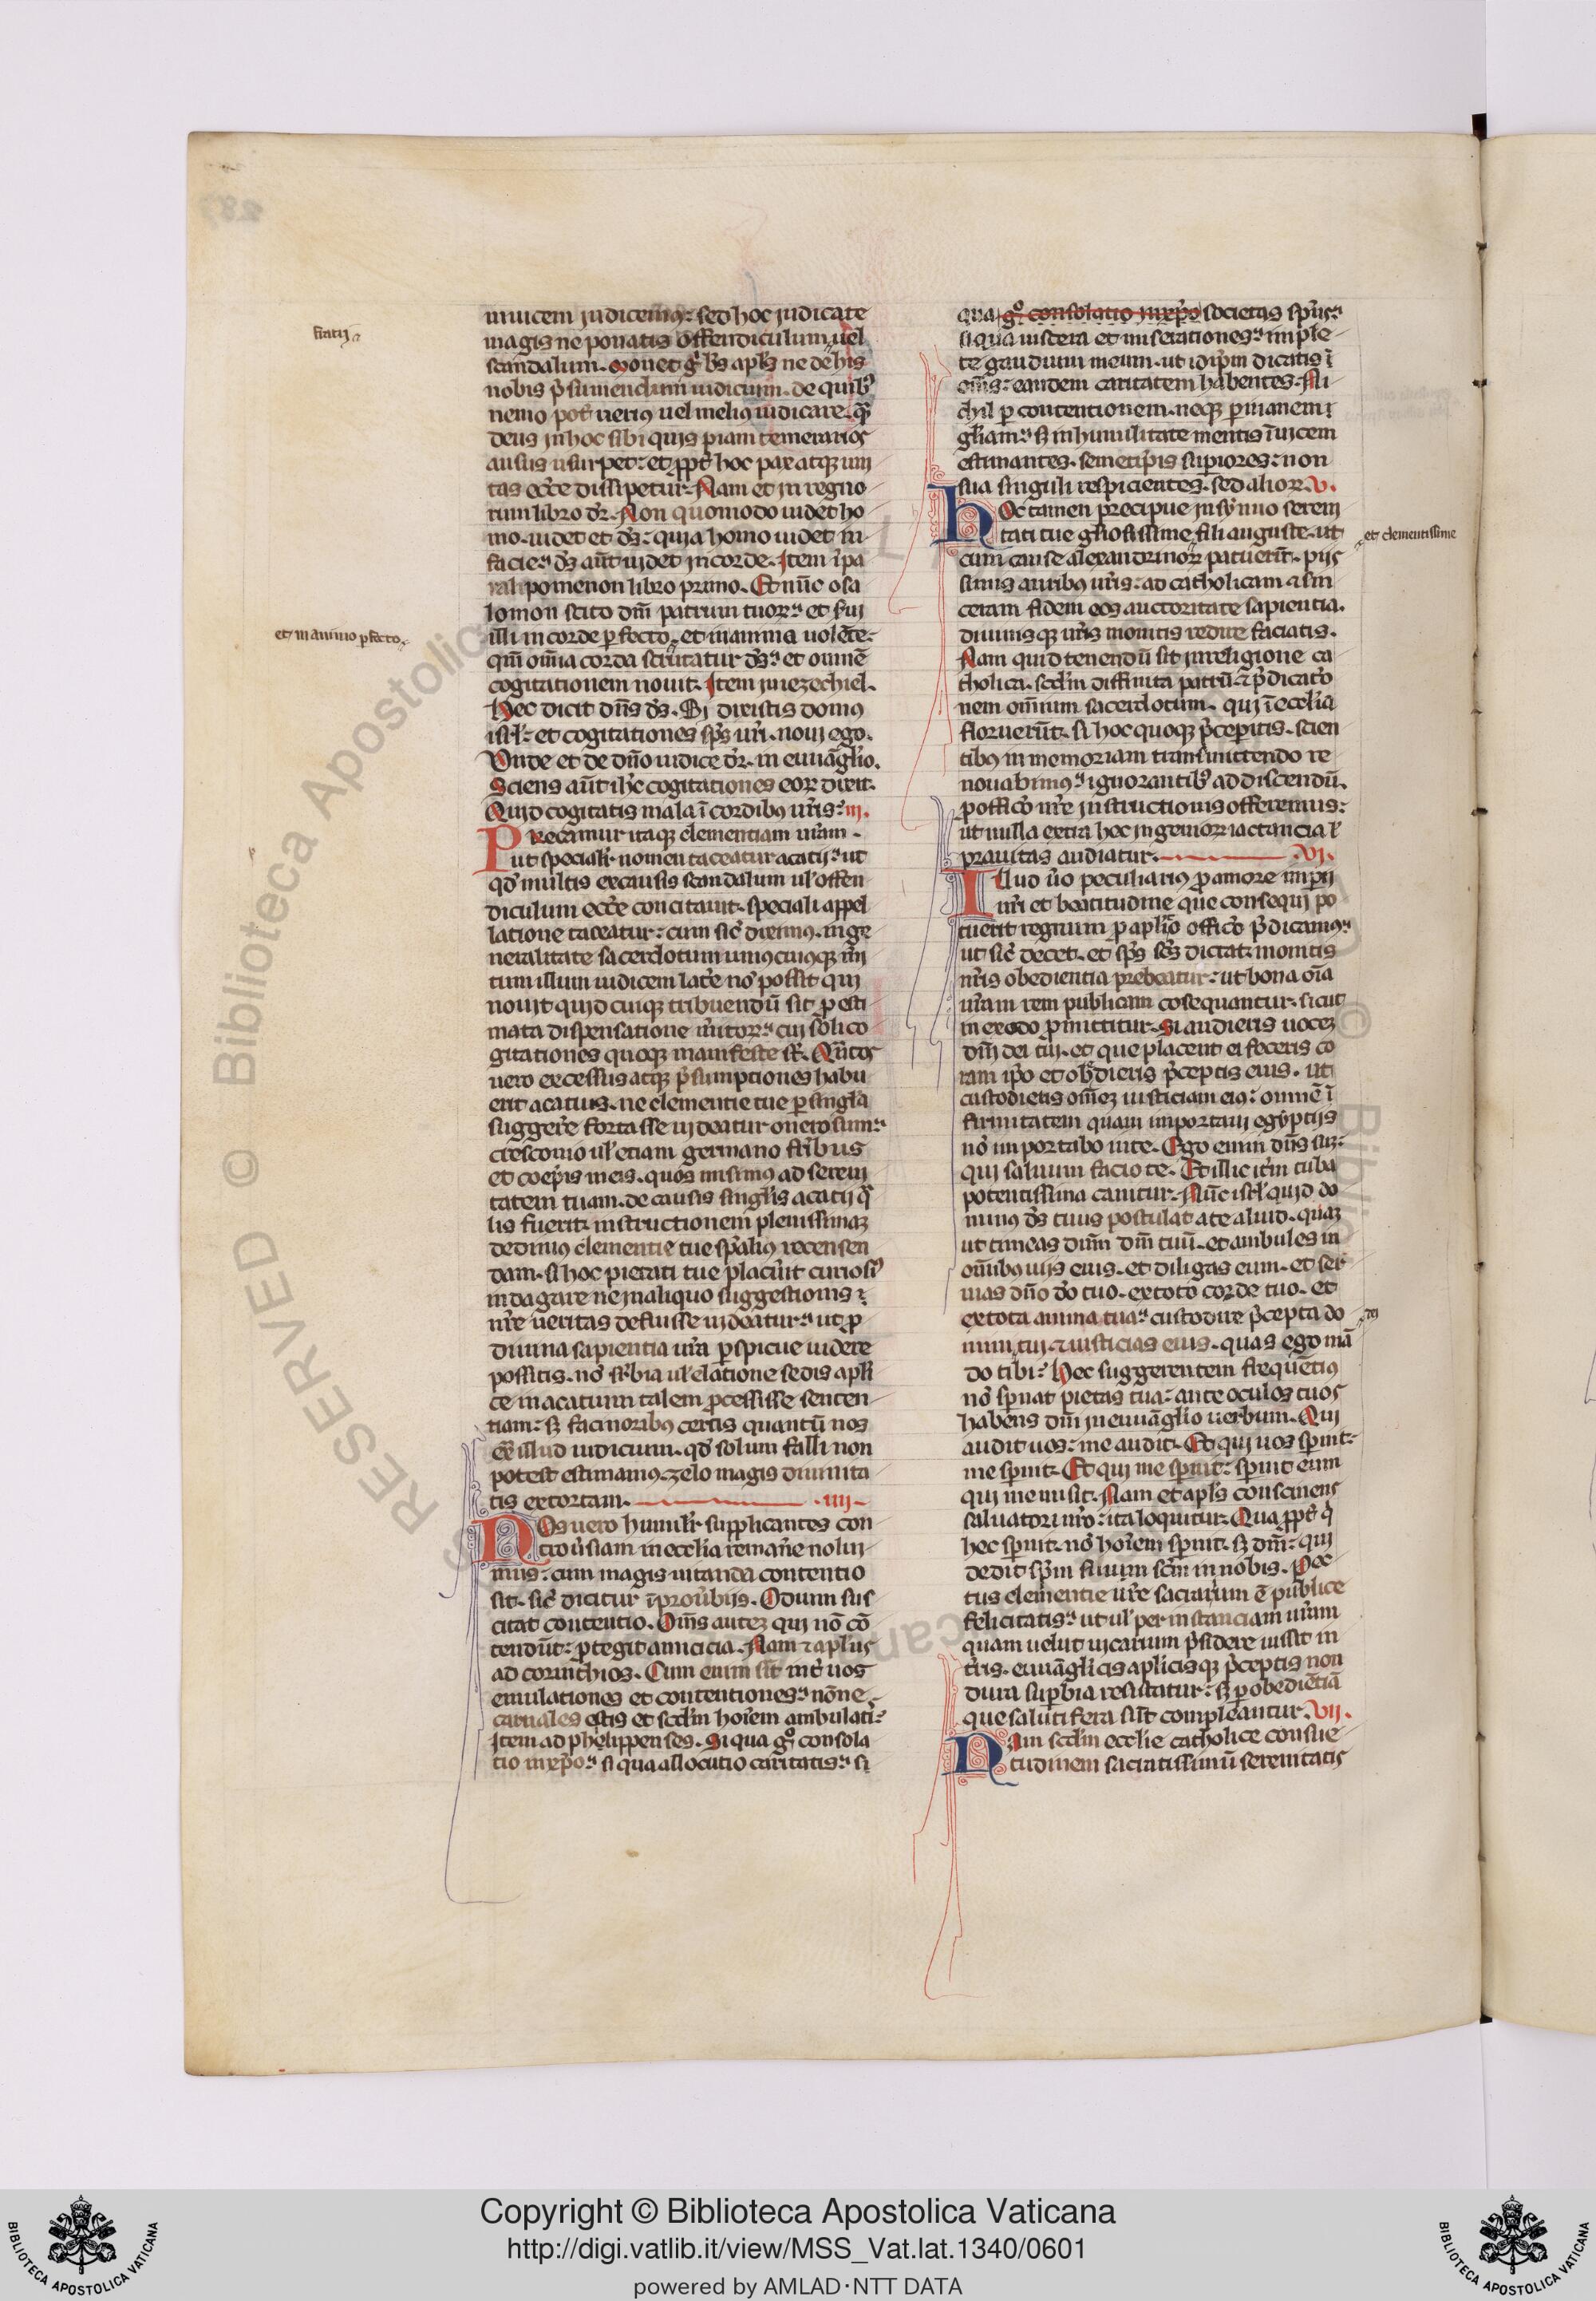 inuicem judicemus: sed hoc judicate
fratri
magis ne ponatis offendiculum uel
scandalum. Monet g° bs apls ne de his
nobis p̄sumendum iudicium. de quib9
nemo pot̄ uerius uel melius iudicare. q̄
deus in hoc sibi quis p̄iam temerarios
ausus usurpet: et ꝓpt̄ hoc pax atqꝫ uni
tas ecc̄e dissipetur. Nam et in regno
rum libro dr̄. Non quomodo uidet ho
mo. uidet et ds̄: quia homo uidet in
facie: ds̄ aūt uidet in corde. Item ī pa
ralipomenon libro primo. Et nūc o sa
lomon scito dm̄ patrum tuoꝝ: et ẜui
illi in corde perfecto. et in anima uolēte:
et in animo perfecto
qm̄ om̄ia corda scrutatur ds̄: et omnē
cogitationem nouit. Item in ezechiel.
Hec dicit dn̄s ds̄. Si dixistis domus
isrl̄: et cogitationes sp̄s ur̄i. noui ego.
Vnde et de dn̄o iudice dr̄. in euuāglio.
Sciens aūt ih̄c cogitationes eoꝝ dixit.
Quid cogitatis mala ī cordibus ur̄is: iii.
Precamur itaqꝫ clementiam ur̄am.
ut specialr̄ nomen taceatur acatii: ut
qd̄ multis ex causis scandalum ul̄ offen
diculum ecc̄e concitauit. speciali appel
latione taceatur: cum sic̄ diximus. in ge
neralitate sacerdotum uniuscuiusqꝫ m̄i
tum illum iudicem latere nō possit qui
nouit quid cuiqꝫ tribuendū sit pro esti
mata dispensatione m̄itoꝝ: cui soli co
gitationes quoqꝫ manifeste st̄. Qn̄tos
uero excessus atqꝫ p̄sumptiones habu
erit acatius. ne clementie tue per singla
suggere fortasse uideatur onerosum:
cresconio ul̄ etiam germano fr̄ibus
et coep̄is meis. quos misimus ad sereni
tatem tuam. de causis singlis acatii q̄
lis fuerit. instructionem plenissimaꝫ
dedimus clementie tue sp̄alius recensen
dam. si hoc pietati tue placuit curiosi9
indagare ne in aliquo suggestionis
nr̄e ueritas defuisse uideatur: ut pro
diuina sapientia ur̄a perspicue uidere
possitis. nō suꝑbia ul̄ elatione sedis apl̄i
ce in acatium talem processisse senten
tiam: sꝫ facinoribus certis quantū nos
ex̄ illud iudicium. qd̄ solum falli non
potest estimamus. zelo magis diuinita
tis extortam. iiii.
Nos uero humilr̄ supplicantes con
trou̇siam in ecclia remane nolui
mus: cum magis uitanda contentio
sit. sic̄ dicitur ī prouerbiis. Odium sus
citat contentio. Om̄s auteꝫ qui nō cō
tendūt: protegit amicicia. Nam ⁊ aplus
ad corinthios. Cum enim sit int̄ uos
emulationes et contentiones: nōne
carnales estis et scdm̄ hoīem ambulatis:
Item ad phelippenses. Si qua g° consola
tio in xpo: si qua allocutio caritatis: si
qua g° consolatio in xpo societas sp̄us:
si qua uiscera et miserationes: imple
te gaudium meum. ut idip̄m dicatis ī
om̄s: eandem caritatem habentes. Ni
chil per contentionem. neqꝫ per inanem
gl̄iam: sꝫ in humilitate mentis īuicem
estimantes. semetip̄is supiores: non
sua singuli respicientes. sed alioꝝ. v.
Hoc tamen precipue insinuo sereni
tati tue gl̄iosissime fili auguste. ut
et clementissime
cum cause alexandrinoꝝ patuerīt. piis
simis auribus ur̄is: ad catholicam ⁊ sin
ceram fidem eos auctoritate sapientia.
diuinisqꝫ ur̄is monitis redire faciatis.
Nam quid tenendū sit in religione ca
tholica. scdm̄ diffinita patrū ⁊ p̄dicatio
nem om̄ium sacerdotum. qui ī ecclia
floruerūt. si hoc quoqꝫ p̄cepitis. scien
tibus in memoriam transmittendo re
nouabimus: ignorantib9 ad discendū.
pro officio nr̄e instructionis offeremus:
ut nulla extra hec ingenioꝝ iactancia l̄
prauitas audiatur. vi.
Illud ūo peculiarius pro amore imperii
ur̄i et beatitudine que consequi po
tuerit regnum pro apl̄ico officio p̄dicamus:
ut sic̄ decet. et sp̄s sc̄s dictat. monitis
nr̄is obedientia prebeatur: ut bona oīa
ur̄am rem publicam cōsequantur. sicut
in exodo promittitur. Si audieris uoceꝫ
dn̄i dei tui. et que placent ei feceris co
ram ip̄o et obedieris p̄ceptis eius. ut
custodieris om̄eꝫ iusticiam eius: omnē ī
firmitatem quam importaui egyptiis
nō importabo in te. Ego enim dn̄s suꝫ:
qui saluum facio te. Et illic it̄m tuba
potentissima canitur. Nūc isrl̄ quid do
minus ds̄ tuus postulat a te aliud. quaꝫ
ut timeas dn̄m dm̄ tuū. et ambules in
om̄ibus uiis eius. et diligas eum. et ser
uias dn̄o dō tuo. ex toto corde tuo. et
ex tota anima tua: custodire p̄cepta do
dei
mini tui ⁊ iusticias eius. quas ego mā
do tibi: Hec suggerentem frequētius
nō spernat pietas tua: ante oculos tuos
habens dm̄ in euuāglio uerbum. Qui
audit uos: me audit. Et qui uos spernit:
me spernit. Et qui me spernit: spernit eum
qui me misit. Nam et apls̄ conscinens
saluatori nr̄o: ita loquitur. Qua ꝓpt̄ q̄
hec spernit. nō hoīem spernit. sꝫ dm̄: qui
dedit sp̄m suum sc̄m in nobis. Pec
tus clementie ur̄e sacrarium ē publice
felicitatis: ut ul̄ per instanciam ur̄am
quam uelut uicarium p̄sidere iussit in
tr̄is. euuāglicis apl̄icisqꝫ p̄ceptis non
dura superbia resistatur: sꝫ per obediētiā
que salutifera sūt compleantur. vii.
Nam scdm̄ ecclie catholice consue
tudinem sacratissimū serenitatis
© Biblioteca Apostolica Vaticana
RESERVED
Copyright © Biblioteca Apostolica Vaticana
http://digi.vatlib.it/view/MSS_Vat.lat.1340/0601
powered by AMLAD·NTT DATA
BIBLIOTECA APOSTOLICA VATICANA
BIBLIOTECA APOSTOLICA VATICANA